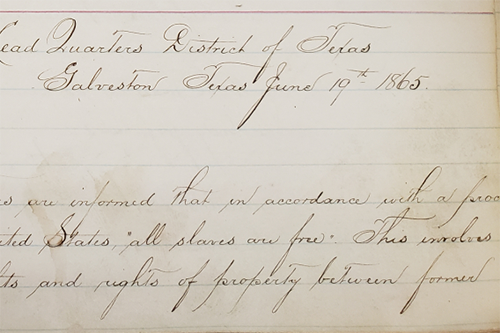 ead Quarters District of Texas
Galveston Texas June 19th 1865.
are informed that in accordance with a proc
ited States, "all slaves are free." This involves
ts and rights of property between former